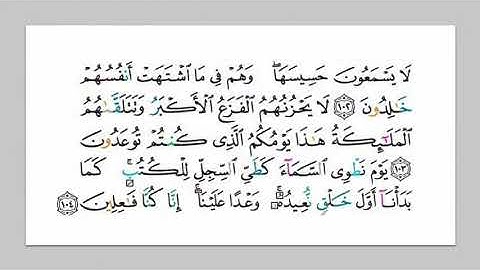 لَا يَسْمَعُونَ حَسِيسَهَا ۖ وَهُمْ فِى مَا ٱشْتَهَتْ أَنفُسُهُمْ
خَـٰلِدُونَ ١٠٢ لَا يَحْزُنُهُمُ ٱلْفَزَعُ ٱلْأَكْبَرُ وَتَتَلَقَّىٰهُمُ
ٱلْمَلَـٰٓئِكَةُ هَـٰذَا يَوْمُكُمُ ٱلَّذِى كُنتُمْ تُوعَدُونَ
١٠٣ يَوْمَ نَطْوِى ٱلسَّمَآءَ كَطَىِّ ٱلسِّجِلِّ لِلْكُتُبِ ۚ كَمَا
بَدَأْنَآ أَوَّلَ خَلْقٍ نُّعِيدُهُۥ ۚ وَعْدًا عَلَيْنَآ ۚ إِنَّا كُنَّا فَـٰعِلِينَ ١٠٤